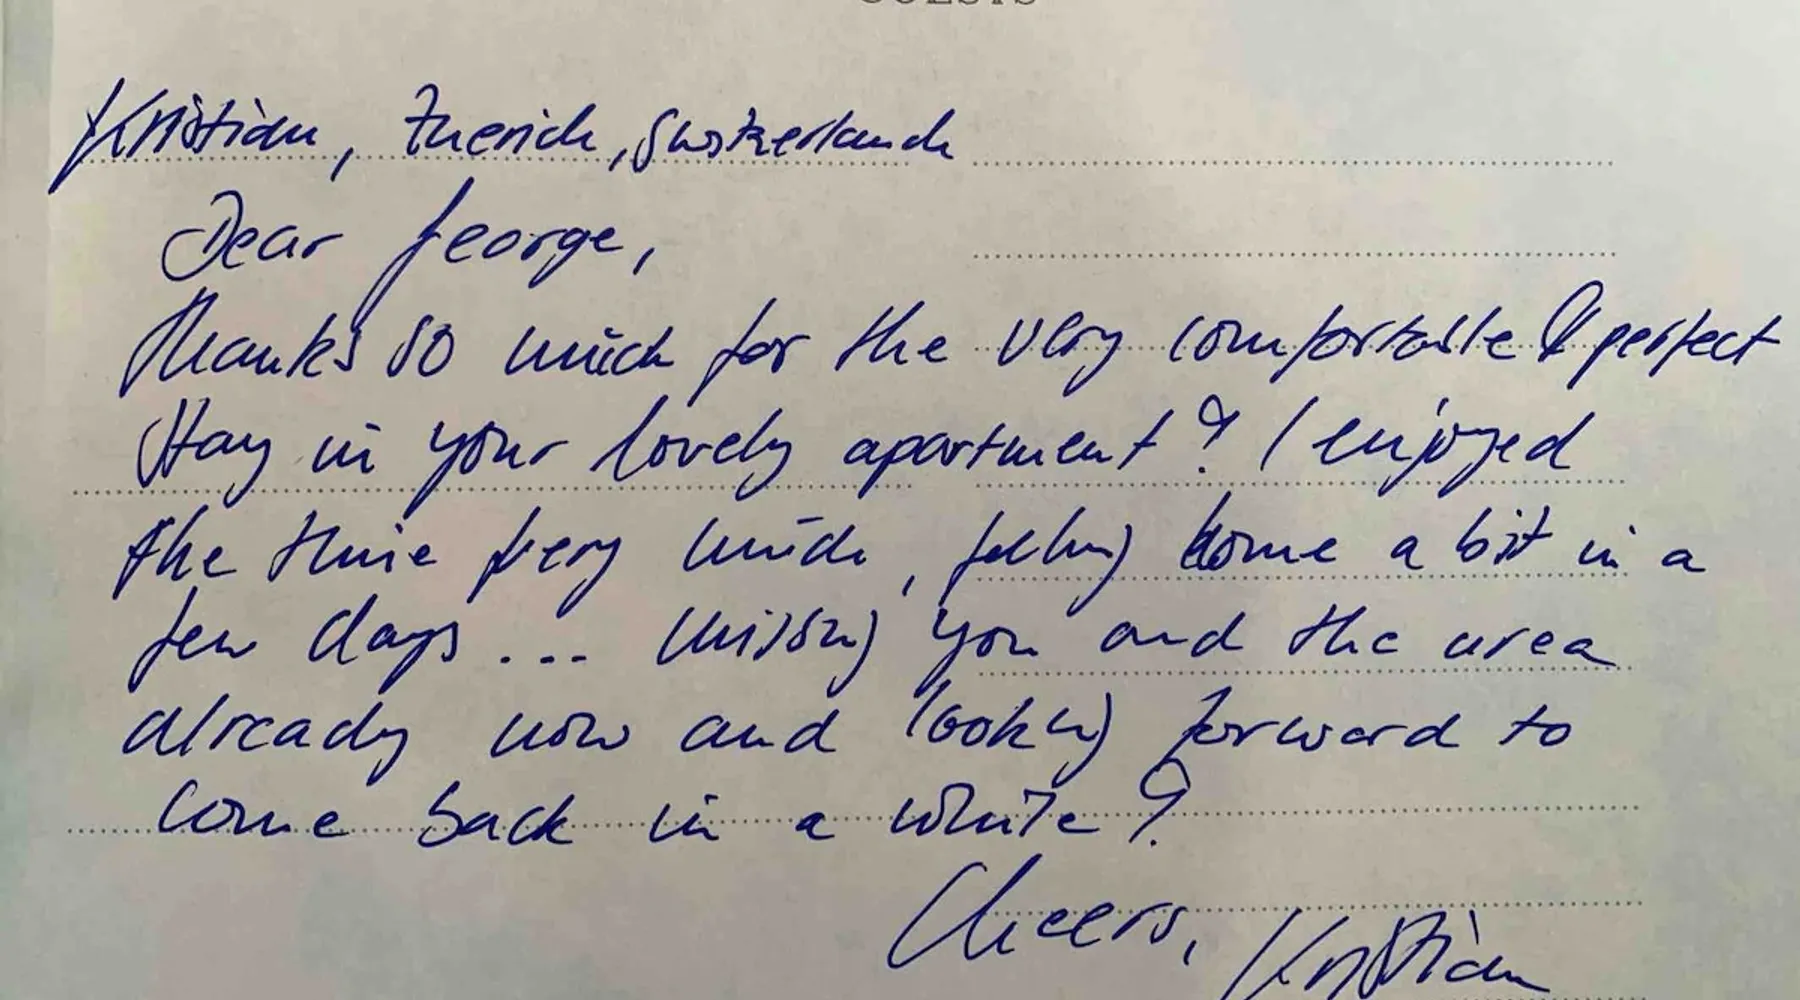 GUESTS
Kristian, Zuerich, Switzerland
Dear George,
Thanks so much for the very comfortable & perfect
stay in your lovely apartment! I enjoyed
the time very much, feeling home a bit in a
few days... missing you and the area
already now and looking forward to
come back in a while!
Cheers, Kristian